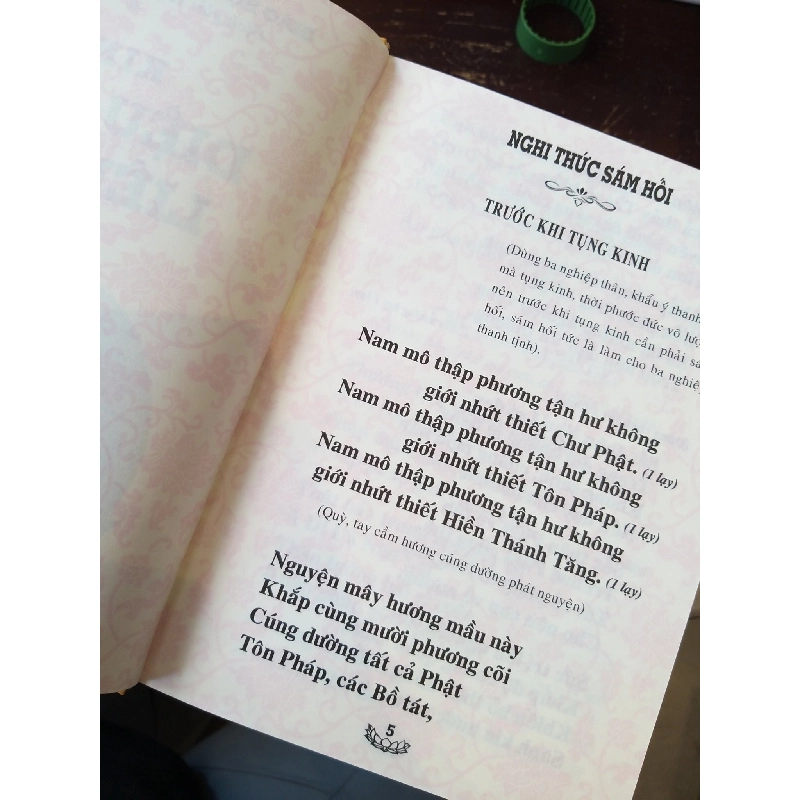 NGHI THỨC SÁM HỒI
TRƯỚC KHI TỤNG KINH
(Dùng ba nghiệp thân, khẩu ý thanh
mà tụng kinh, thời phước đức vô
nên trước khi tụng kinh cần phải
hối, sám hối tức là làm cho ba
thanh tịnh).
Nam mô thập phương tận hư không
giới nhứt thiết Chư Phật. (1 lạy)
Nam mô thập phương tận hư không
giới nhứt thiết Tôn Pháp. (1 lạy)
Nam mô thập phương tận hư không
giới nhứt thiết Hiền Thánh Tăng. (1 lạy)
(Quỳ, tay cầm hương cúng dường phát nguyện)
Nguyện mây hương mầu này
Khắp cùng mười phương cõi
Cúng dường tất cả Phật
Tôn Pháp, các Bồ tát,
5